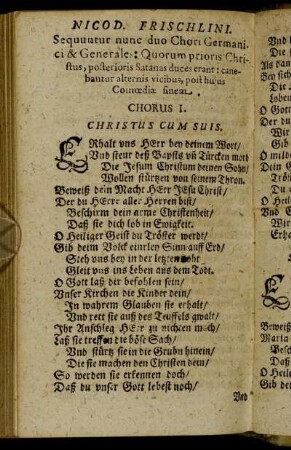 NICOD. FRISCHLINI.
Sequuntur nunc duo Chori Germani-
ci & Generale: Quorum prioris Chri-
stus, posterioris Satanas duces erant: cane-
bantur alternis vicibus, post huius
Comœdiæ finem.
CHORUS I.
CHRISTUS CUM SUIS.
ERhalt vns HErr bey deinem Wort/
Vnd steur deß Bapsts vñ Türcken mord
Die Jesum Christum deinen Sohn/
Wollen stürtzen von seinem Thron.
Beweiß dein Macht HErr JEsu Christ/
Der du HErr aller Herren bist/
Beschirm dein arme Christenheit/
Daß sie dich lob in Ewigkeit.
O Heiliger Geist du Tröster werd/
Gib deim Volck einrley Sinn auff Erd/
Steh vns bey in der letzten noht
Gleit vns ins Leben aus dem Todt.
O Gott laß dir befohlen sein/
Vnser Kirchen die Kinder dein/
In wahrem Glauben sie erhalt/
Vnd rett sie auß des Teuffels gwalt/
Ihr Anschleg HErr zu nichten mach/
Laß sie treffen die böse Sach/
Vnd stürtz sie in die Grubn hinein/
Die sie machen den Christen dein/
So werden sie erkennen doch/
Daß du vnser Gott lebest noch/
Vnd